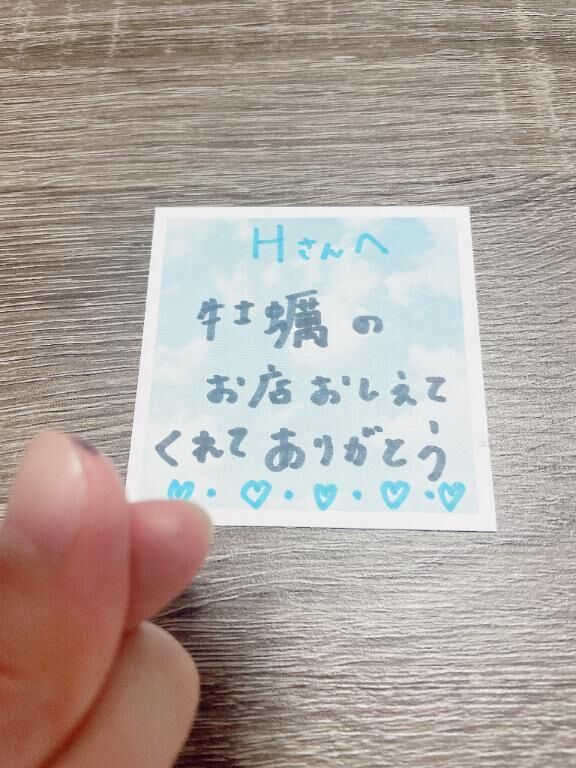 Hさんへ
牡蠣の
お店おしえて
くれてありがとう